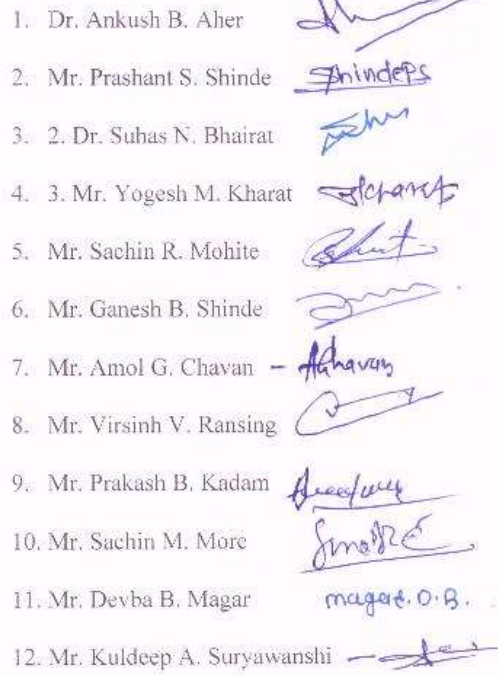 1. Dr. Ankush B. Aher
2. Mr. Prashant S. Shinde Shindeps
3. 2. Dr. Suhas N. Bhairat
4. 3. Mr. Yogesh M. Kharat
5. Mr. Sachin R. Mohite
6. Mr. Ganesh B. Shinde
7. Mr. Amol G. Chavan - AGhavan
8. Mr. Virsinh V. Ransing
9. Mr. Prakash B. Kadam
10. Mr. Sachin M. More
11. Mr. Devba B. Magar magar. D. B.
12. Mr. Kuldeep A. Suryawanshi -